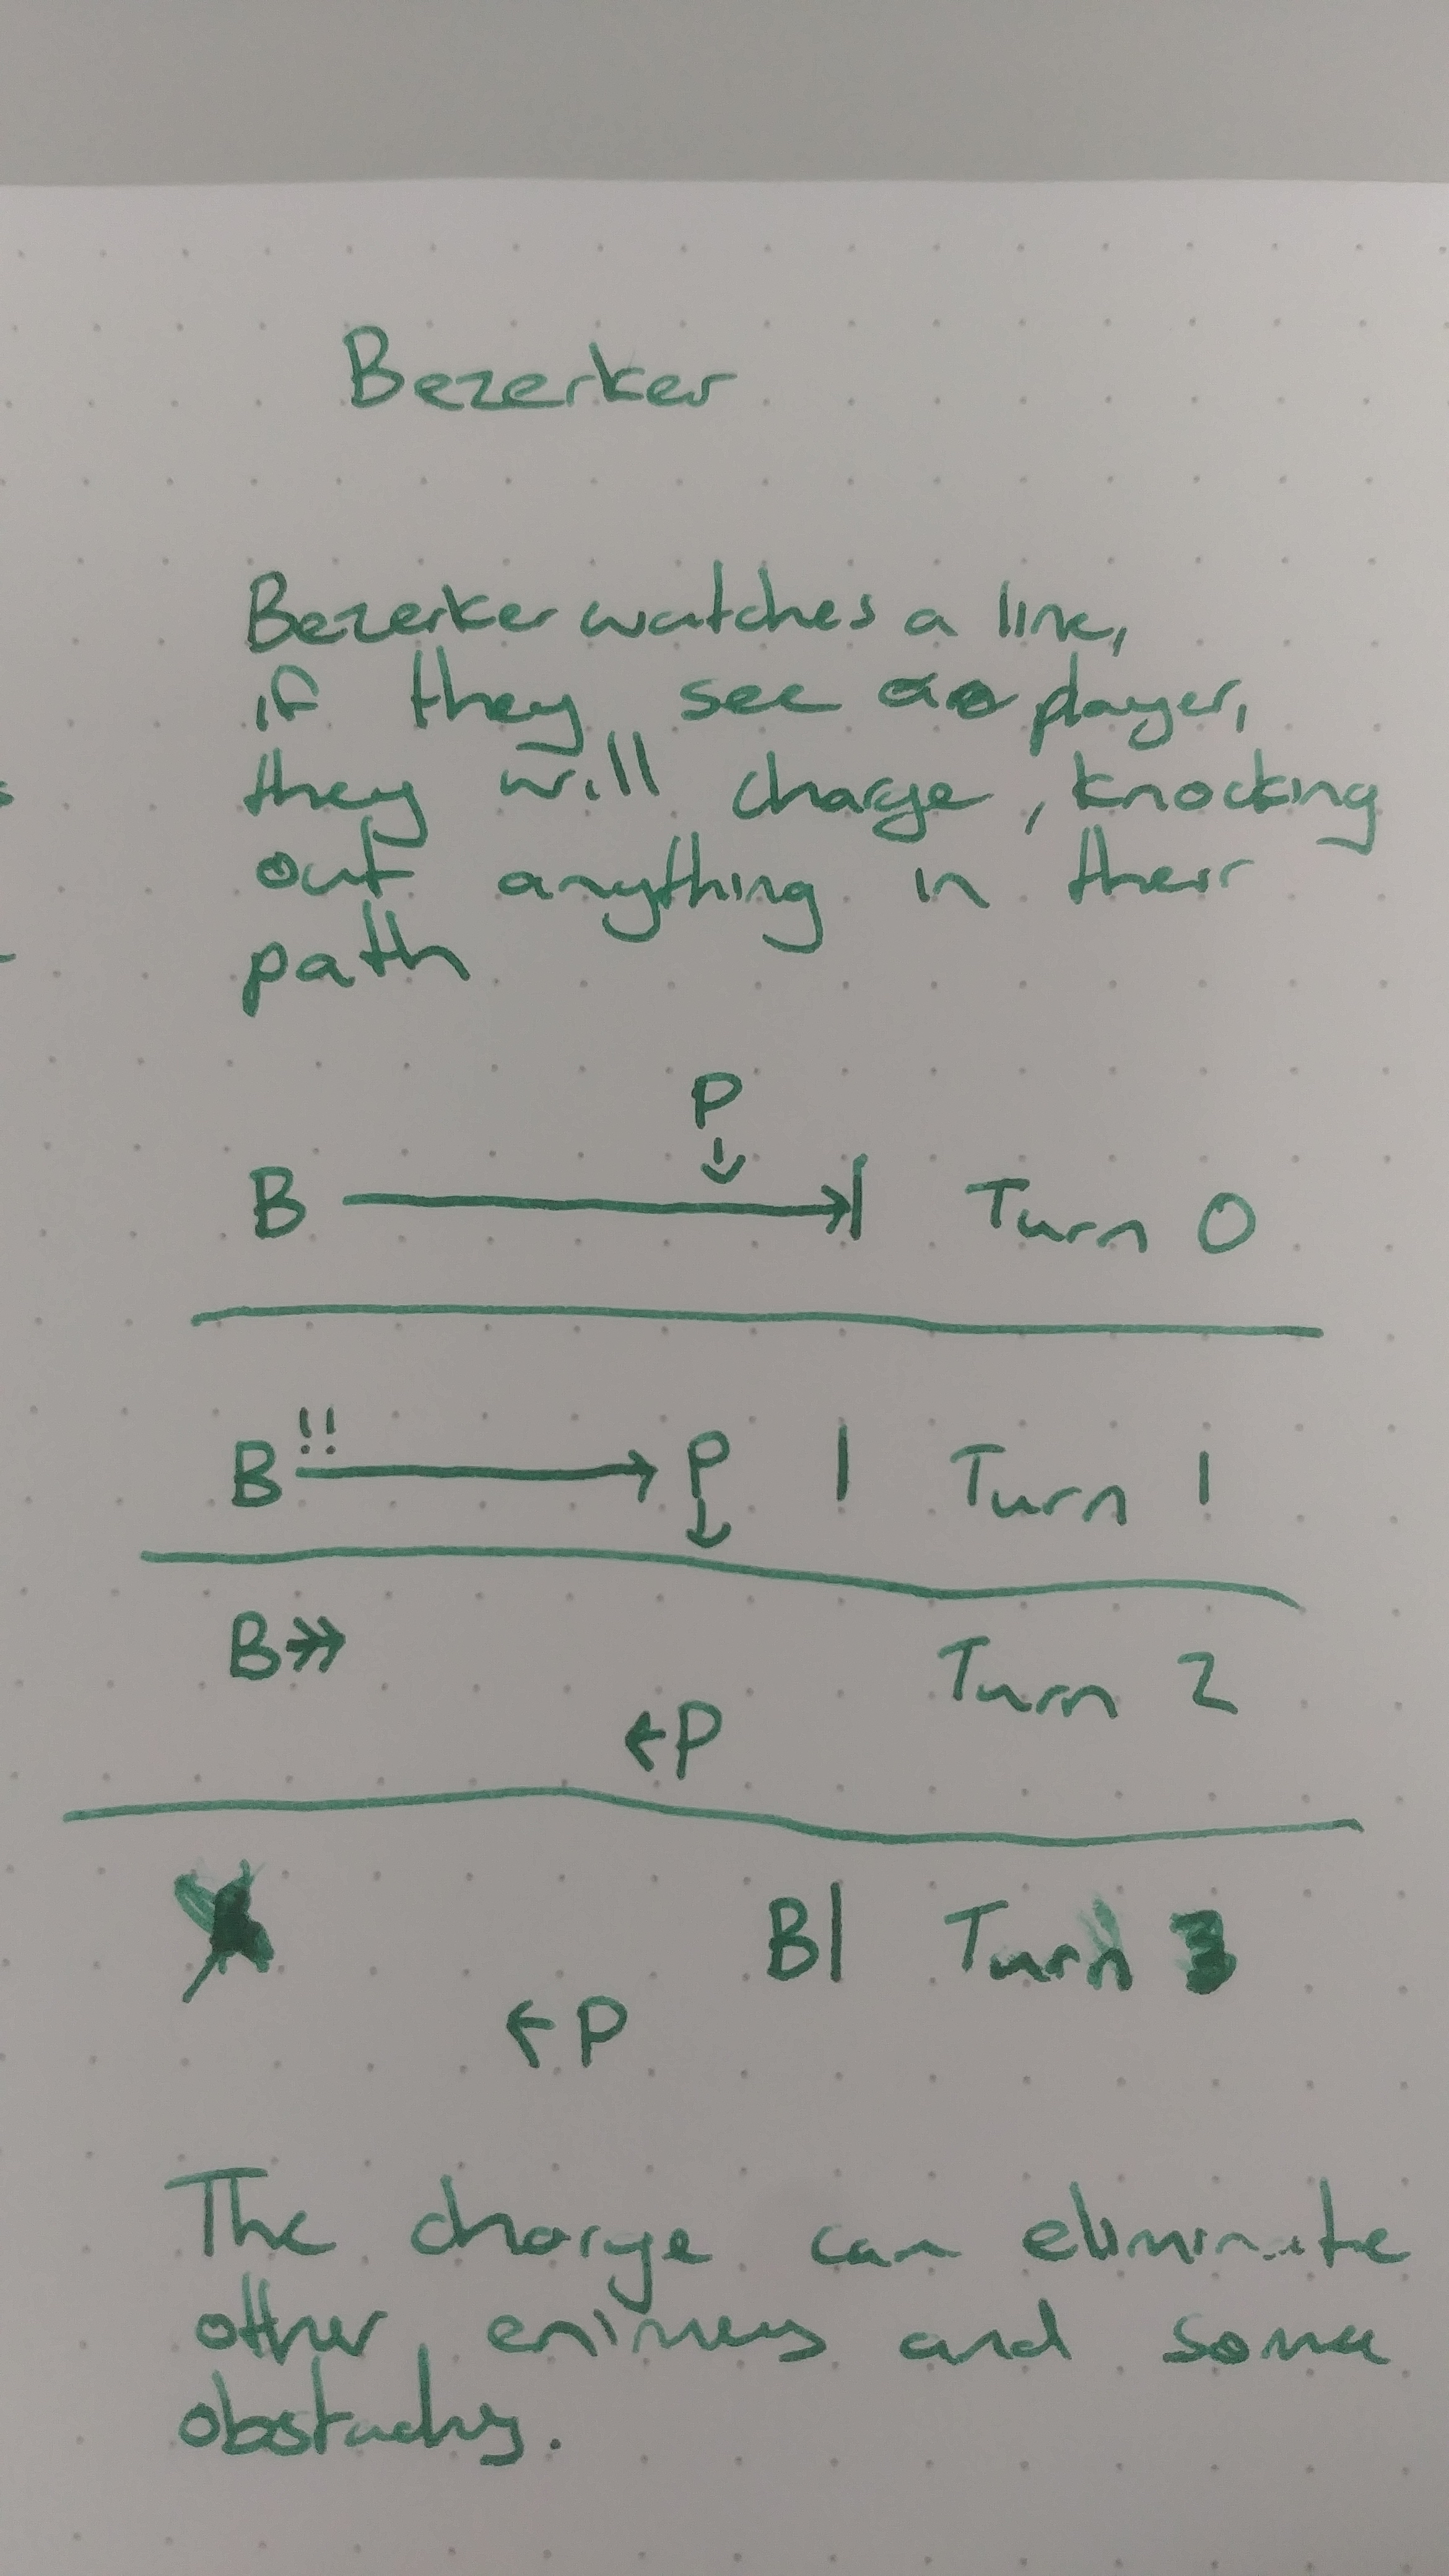 Bezerker
Bezerker watches a line,
if they see a player,
they will charge, knocking
out anything in their
path
P
B Turn 0
!!
B P Turn 1
B Turn 2
P
B Turn 3
P
The charge can eliminate
other enimeys and some